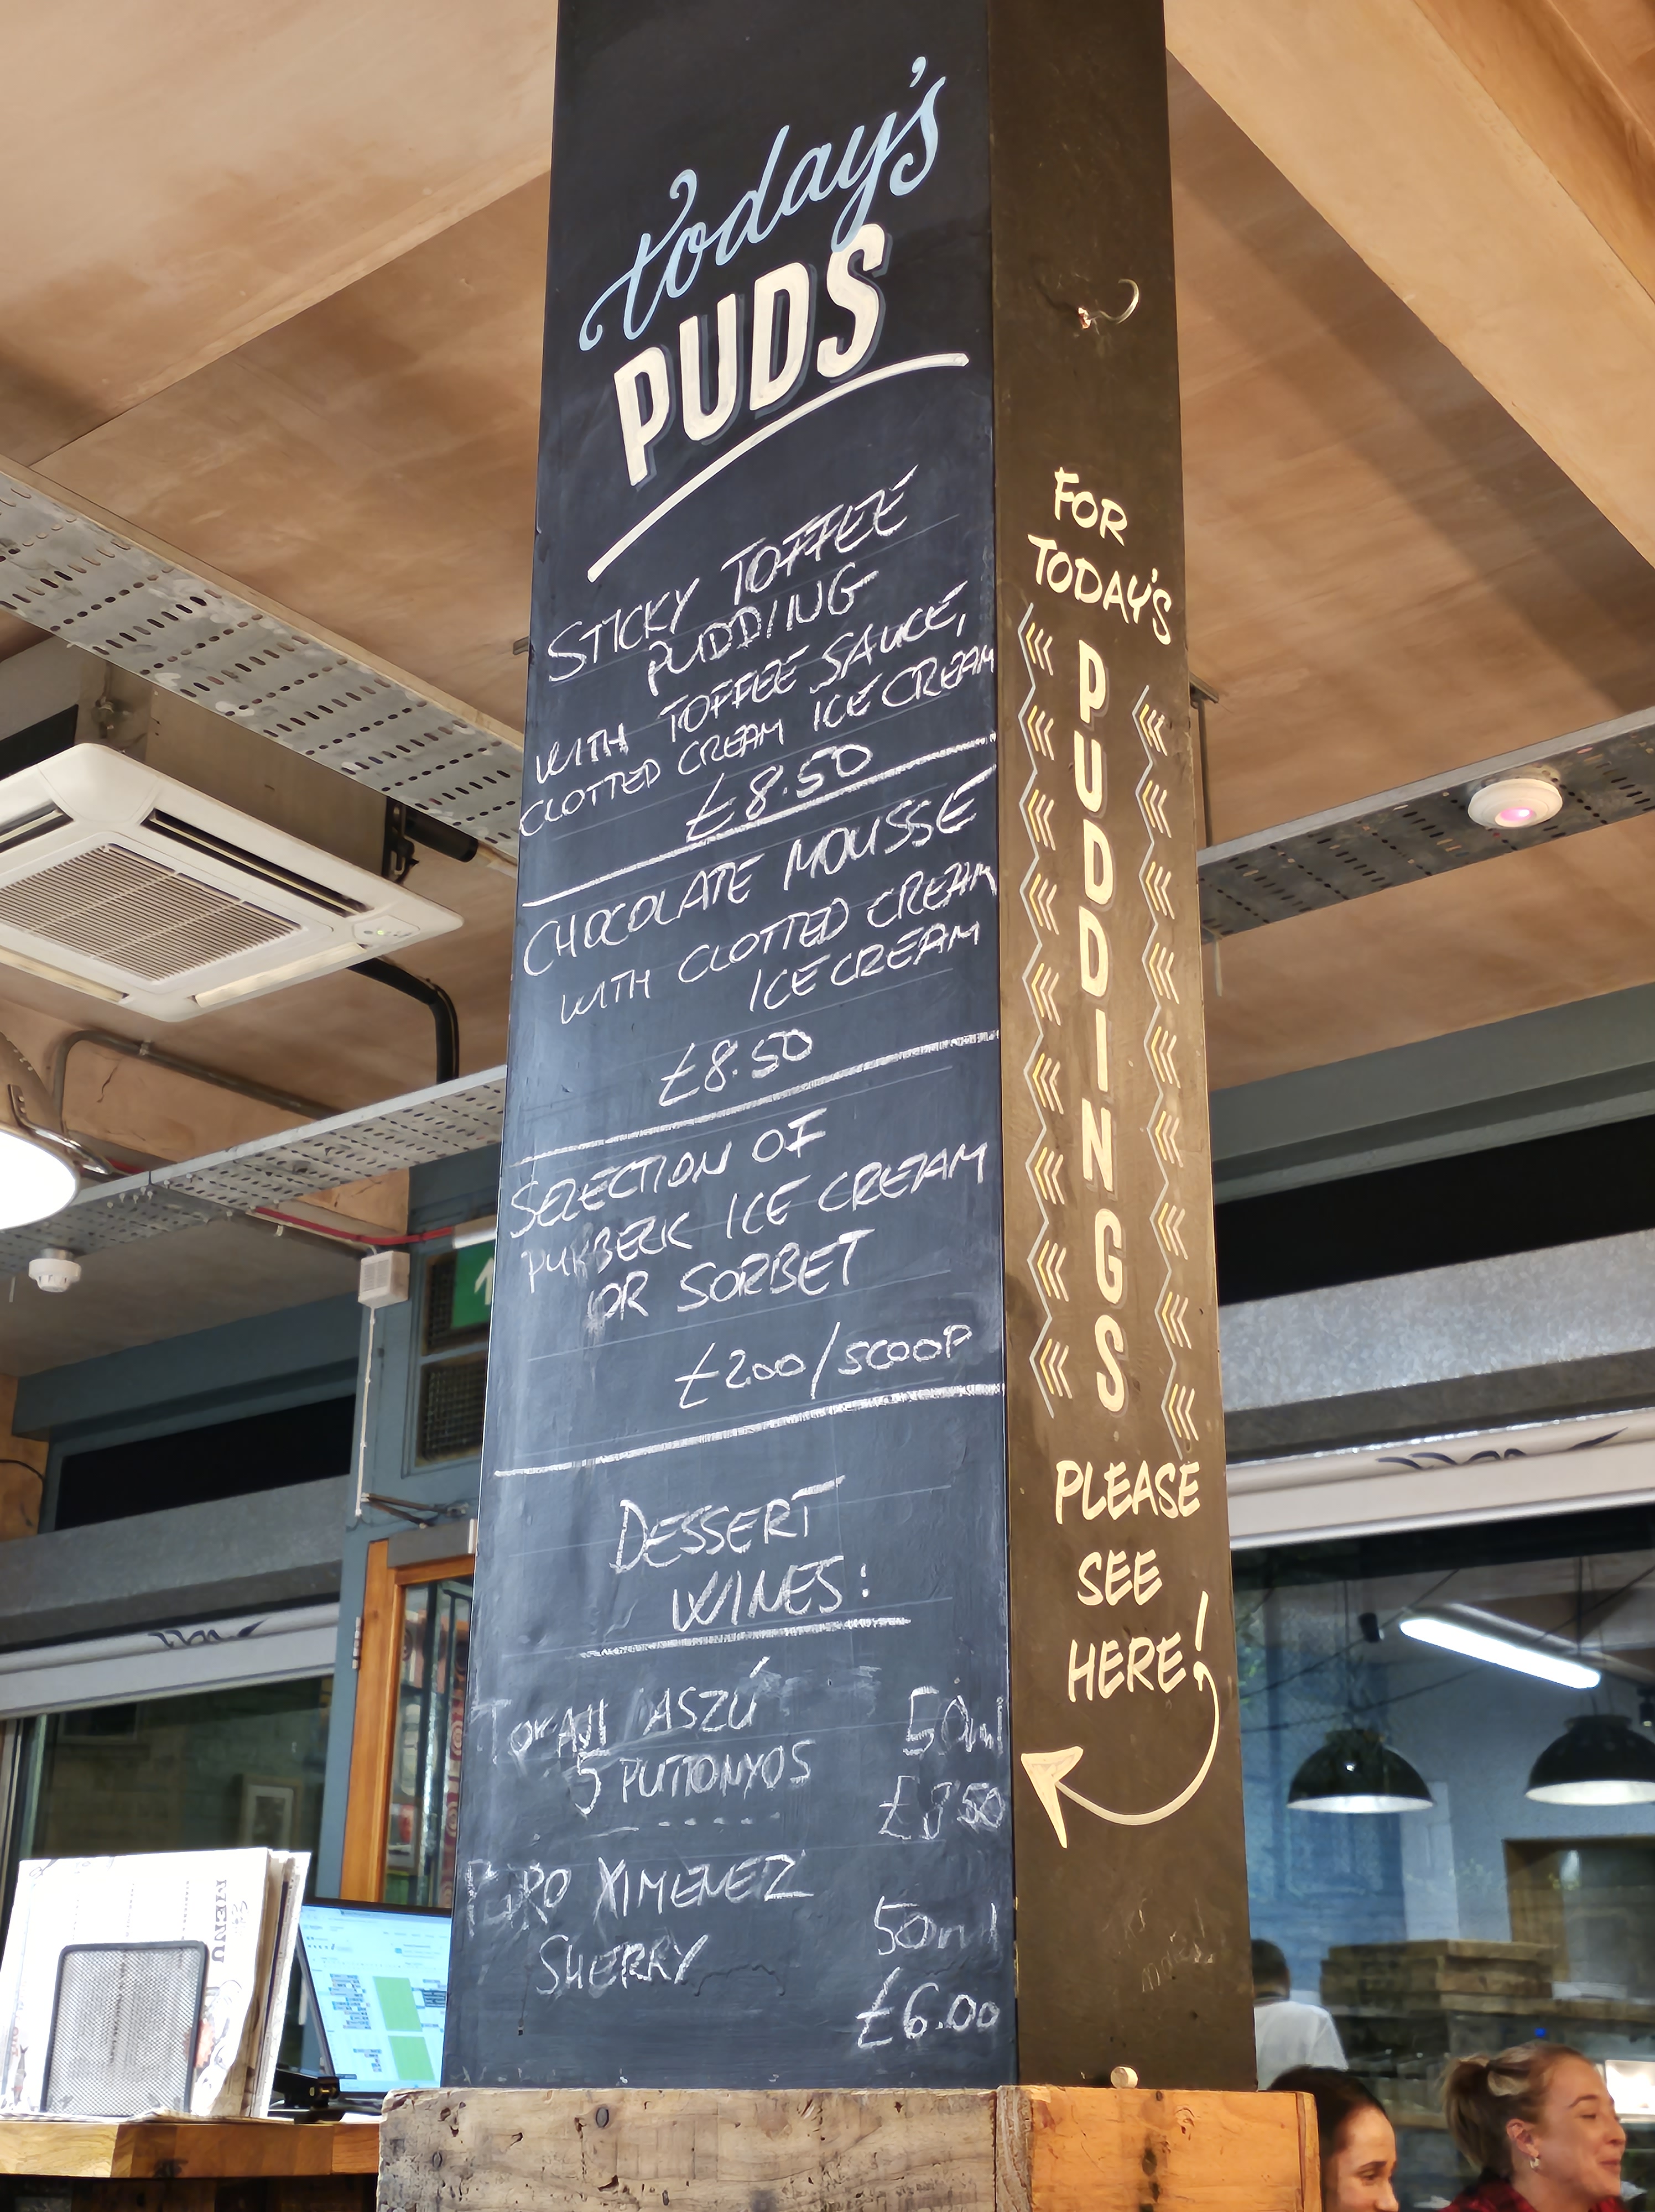 today's
PUDS
STICKY TOFFEE
PUDDING
WITH TOFFEE SAUCE,
CLOTTED CREAM ICE CREAM
£8.50
CHOCOLATE MOUSSE
WITH CLOTTED CREAM
ICE CREAM
£8.50
SELECTION OF
PURBECK ICE CREAM
OR SORBET
£200/SCOOP
DESSERT
WINES:
TOKAJI ASZÚ 50ml
5 PUTTONYOS
XIMENEZ
SHERRY 50ml
£6.00
FOR
TODAY'S
PUDDINGS
PLEASE
SEE
HERE!
MENU